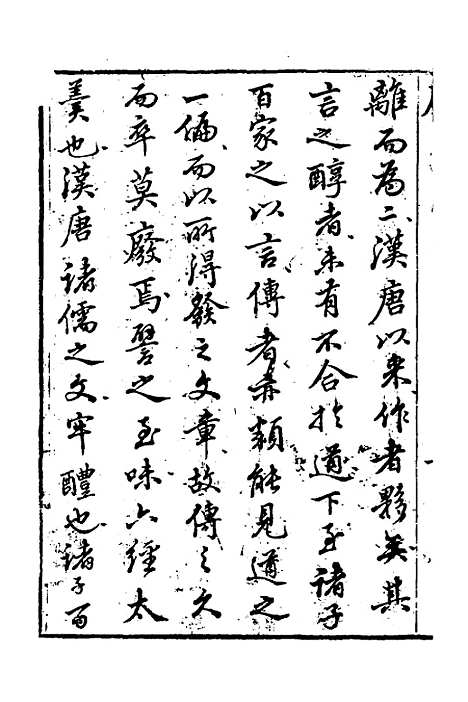 離而為二漢唐以来作者夥矣其
言之醇者未有不合於道下至諸子
百家之以言傳者亦類能見道之
一偏而以所得發之文章故傳之久
而卒莫廢焉譬之至味六經太
羹也漢唐諸儒之文牢醴也諸子百